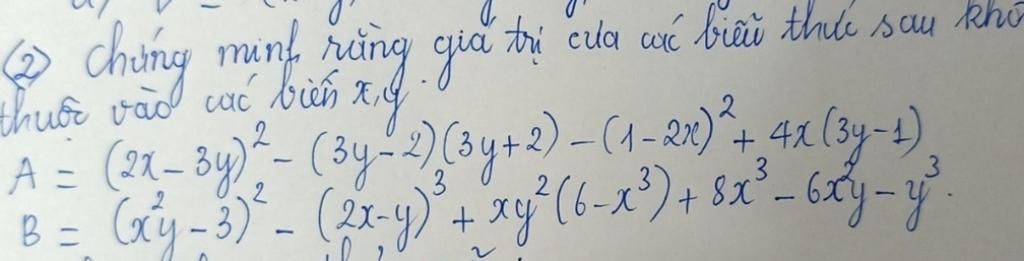 ② chứng minh rằng giá trị của các biểu thức sau khô
thuộc vào các biến x, y.
A = (2x – 3y)² – (3y – 2)(3y + 2) – (1 – 2x)² + 4x(3y – 1)
B = (x²y – 3)² – (2x – y)³ + xy²(6 – x³) + 8x³ – 6x²y – y³.